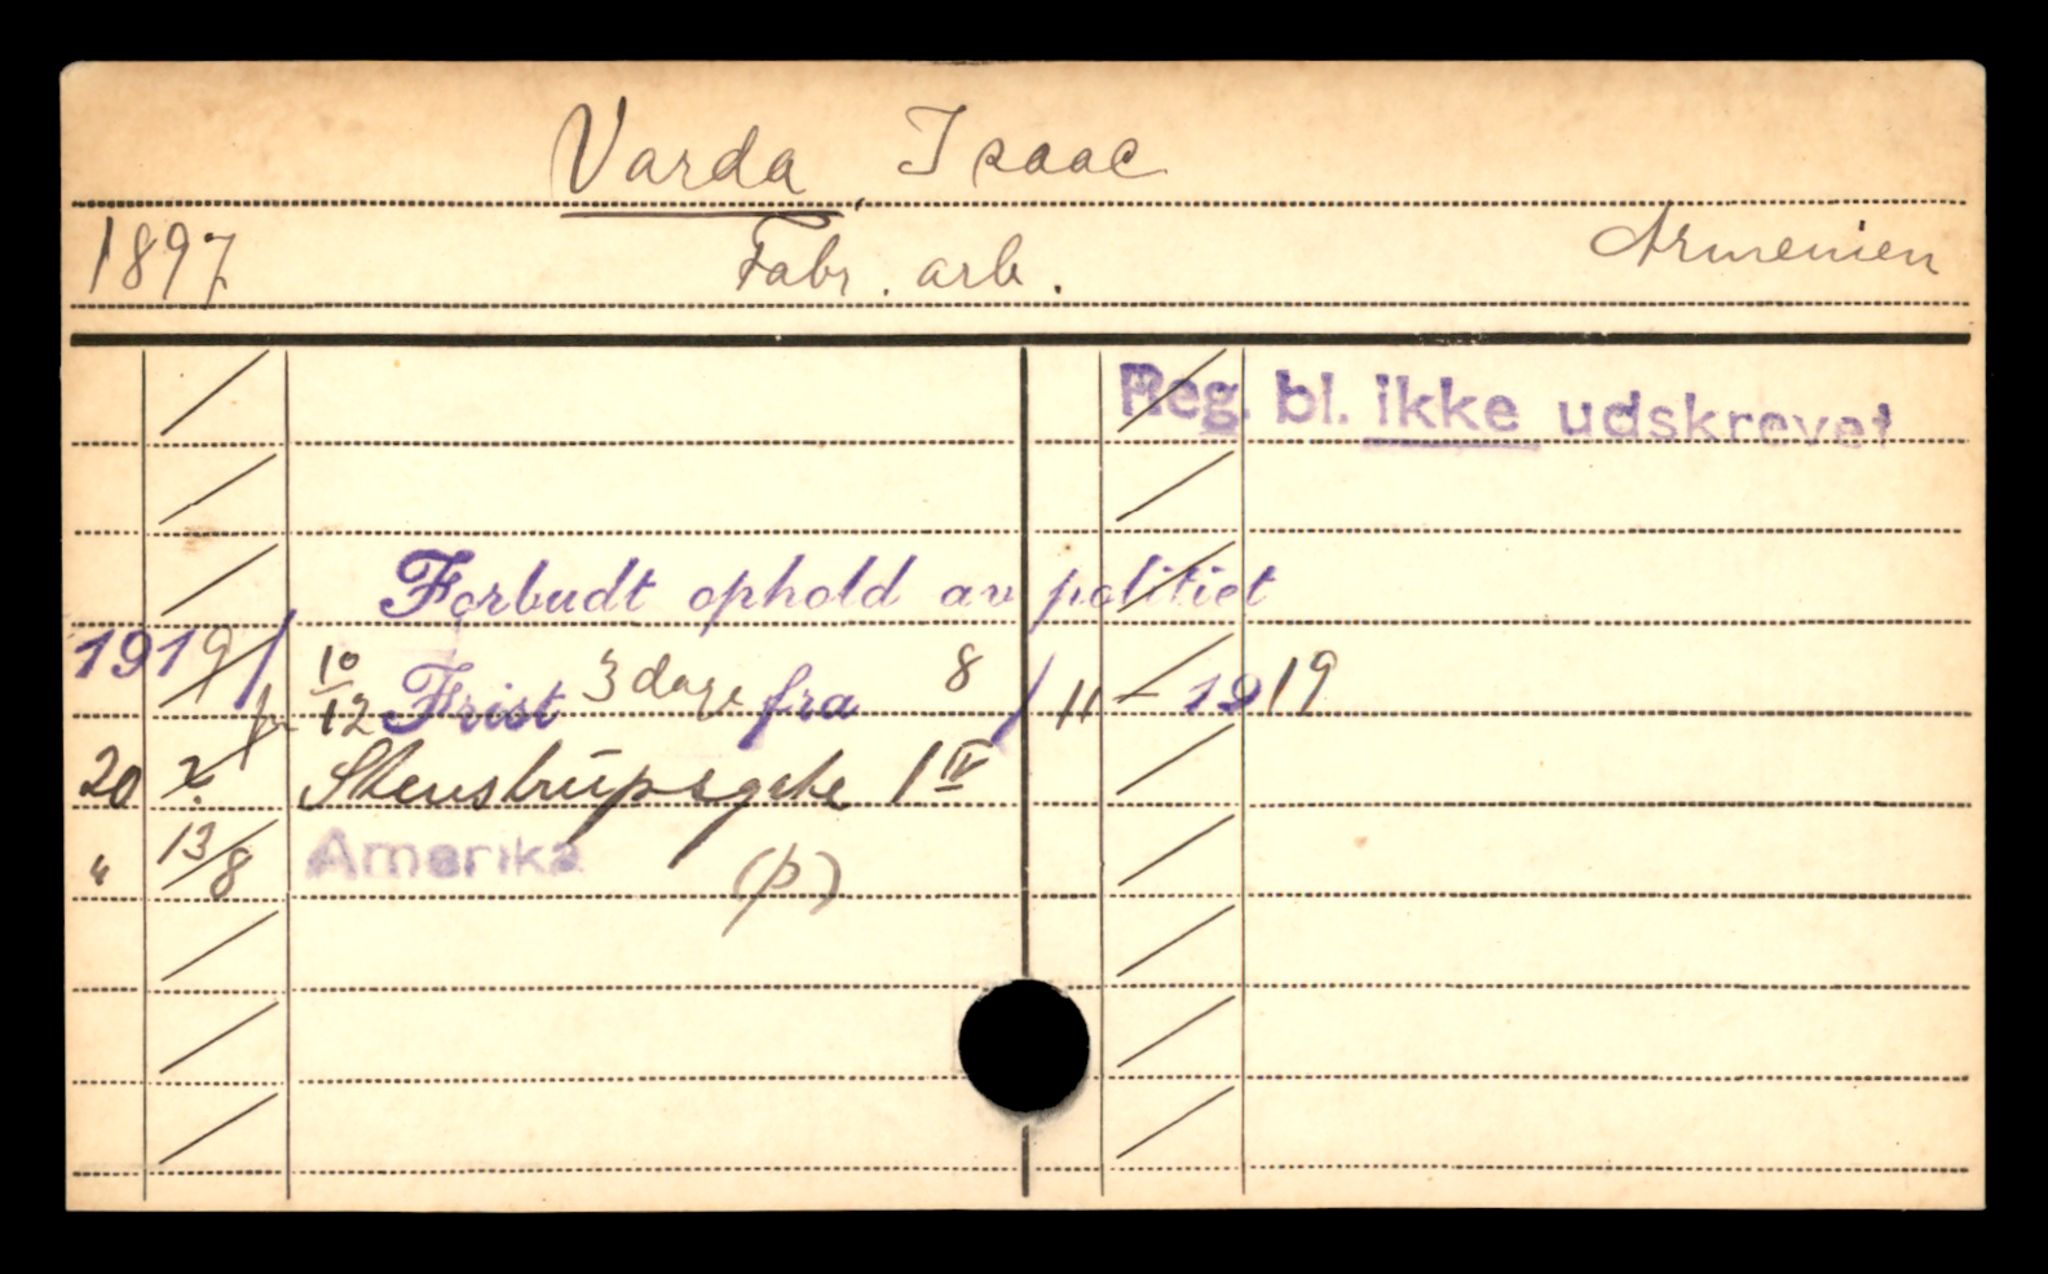 Varda, Isaac
1897 Fabr. arb. Armenien
Reg. bl. ikke udskrevet
Forbudt ophold av politiet
1919 / 10/12 Frist 3 dage fra 8 / 11 - 1919
20 Stenstrupsgate 1 IV
" 13/8 Amerika (p)